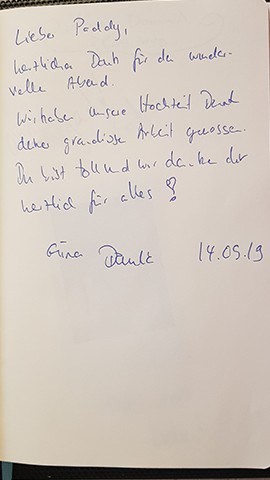 Lieber Paddy,
herzlichen Dank für den wunder-
volle Abend.
Wir haben unsere Hochzeit Dank
deiner grandiosen Arbeit genossen.
Du bist toll und wir danken dir
herzlich für alles !
14.09.19